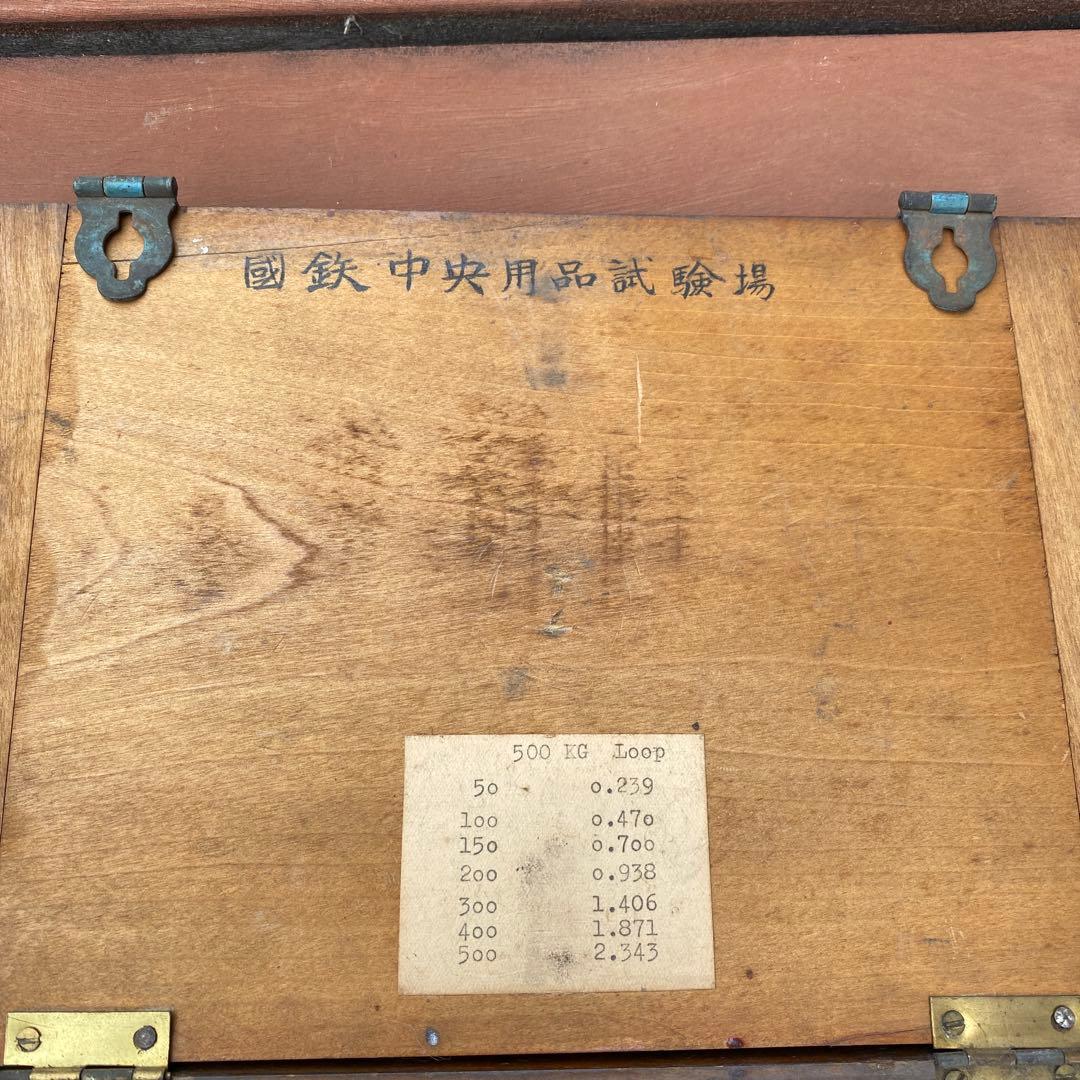 國鉄中央用品試験場
500 KG Loop
50 0.239
100 0.470
150 0.706
200 0.938
300 1.406
400 1.871
500 2.343